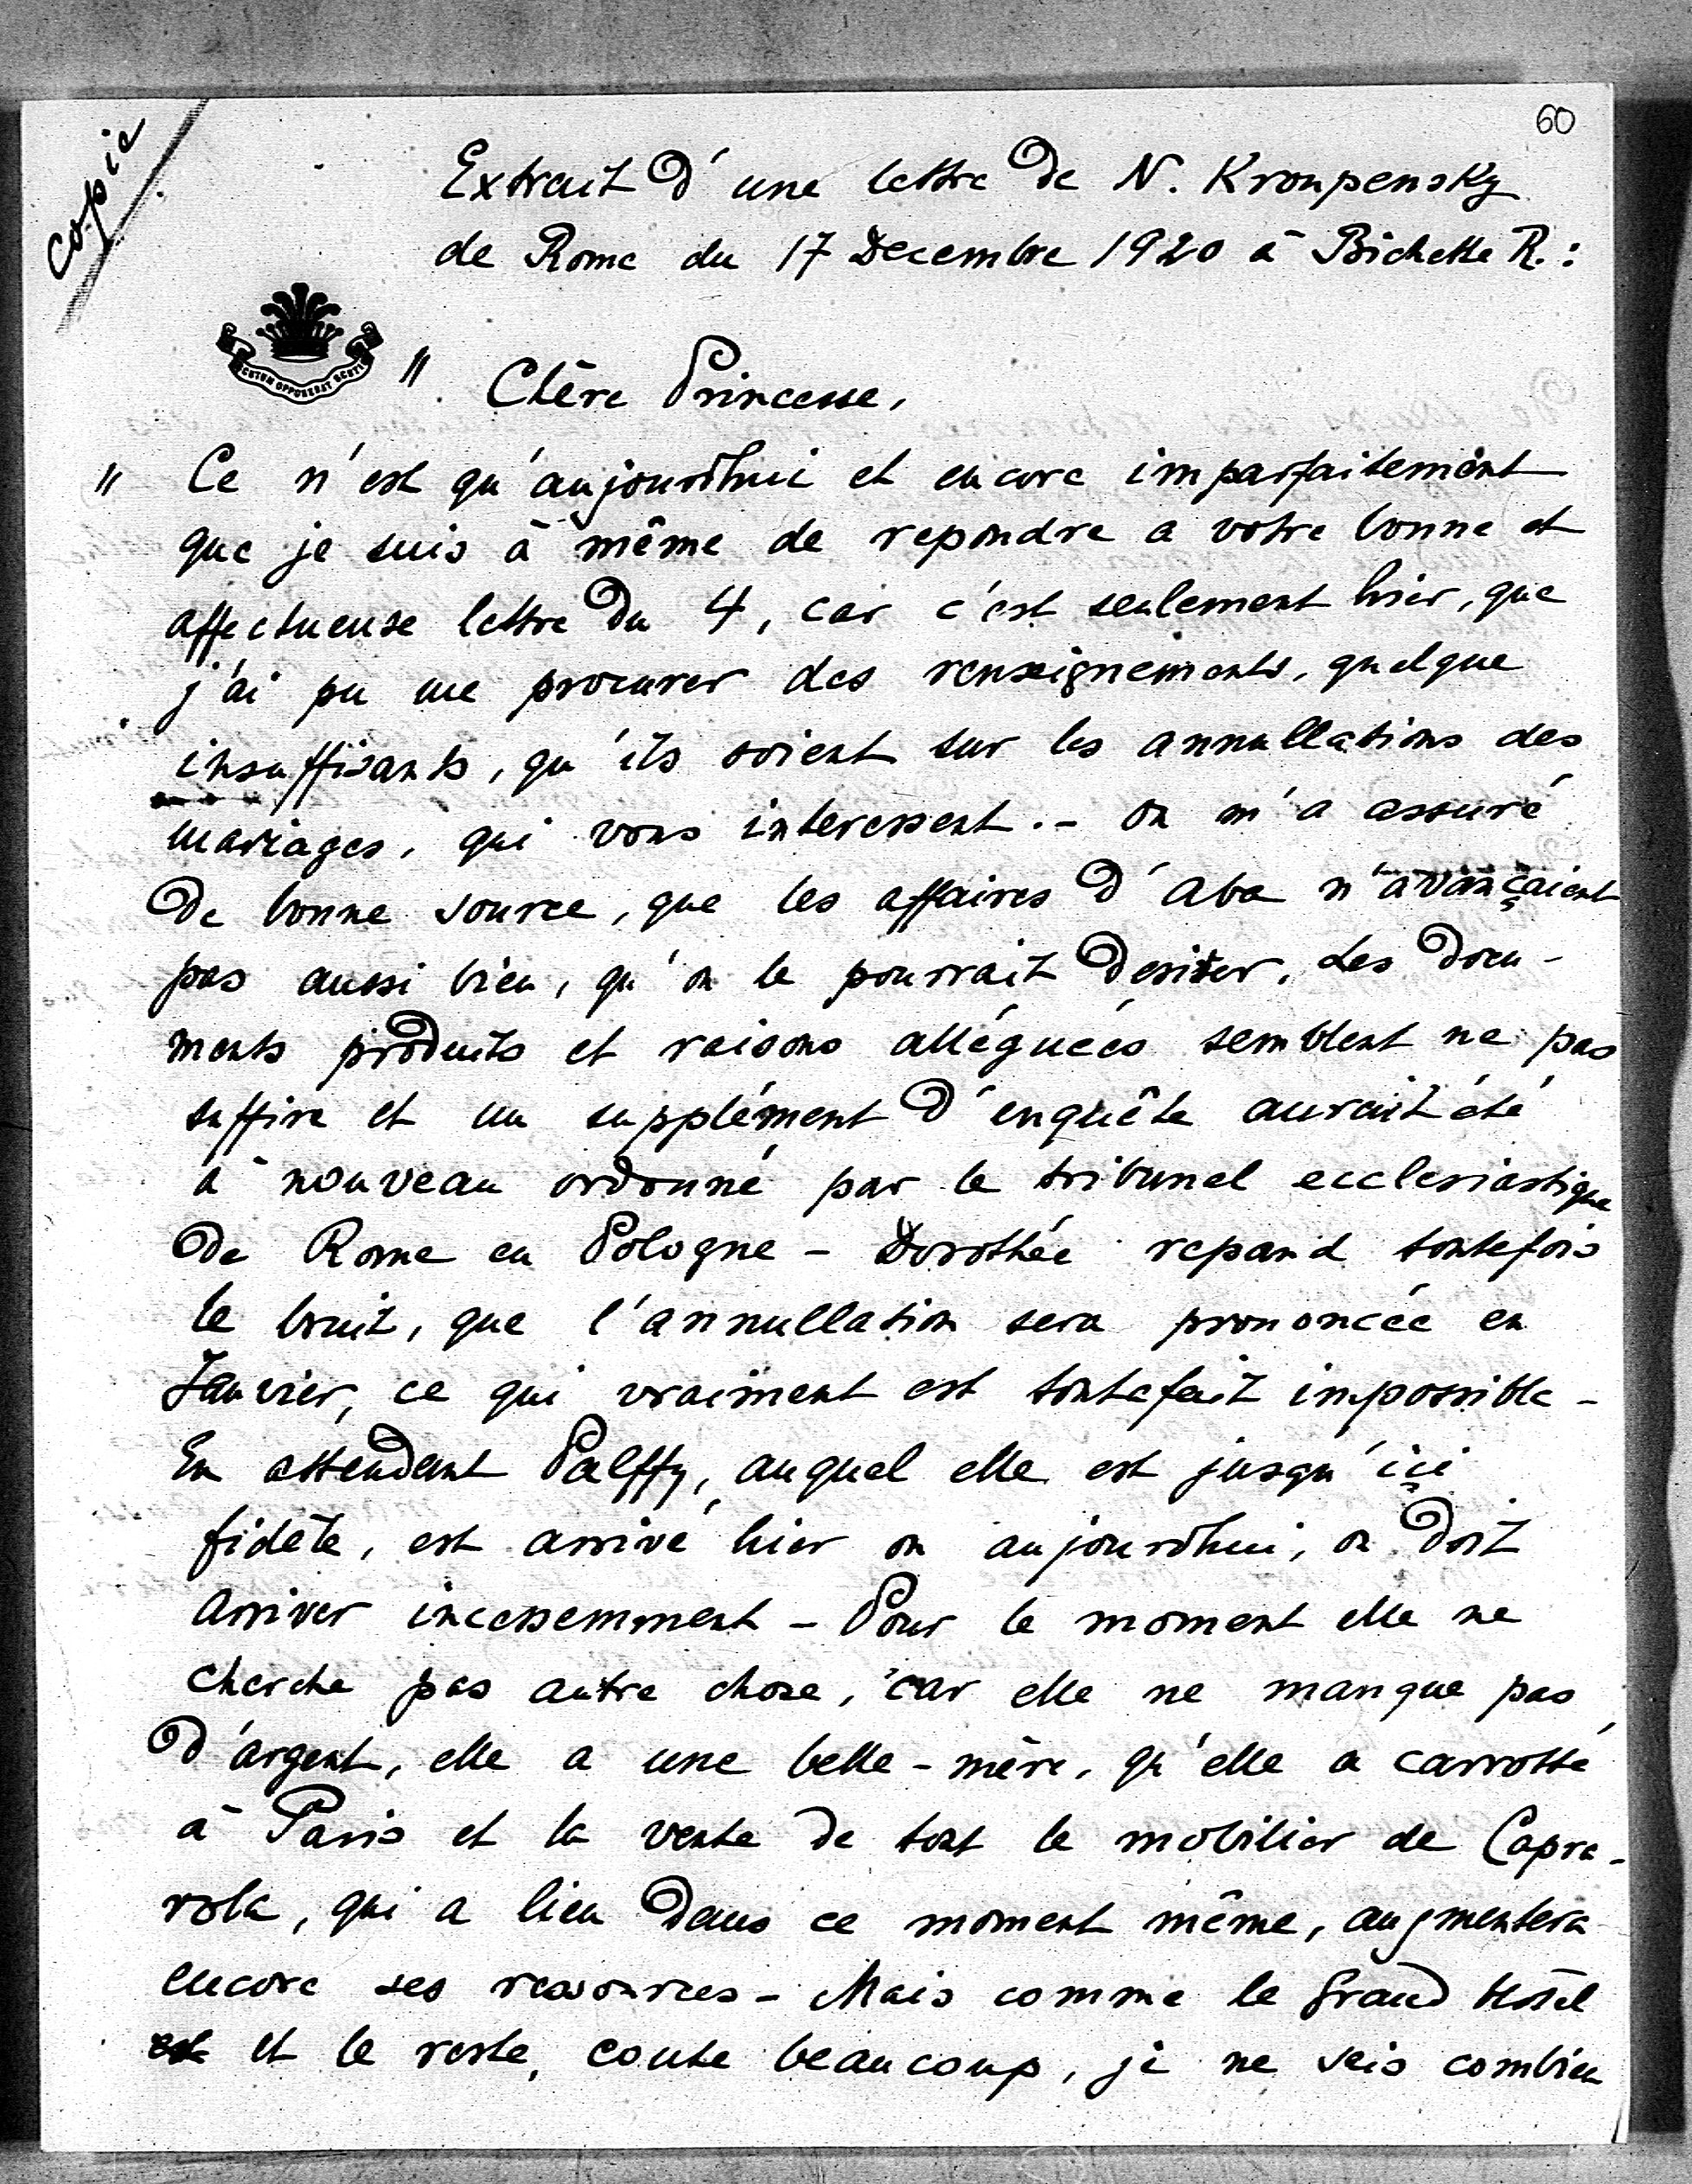 60
copie
Extrait d'une lettre de N. Kroupensky
de Rome du 17 Decembre 1920 à Bichette R.:
" Chère Princesse,
" Ce n'est qu'aujourdhui et encore imparfaitement
que je suis à même de repondre a votre bonne et
affectueuse lettre du 4, car c'est seulement hier, que
j'ai pu me procurer des renseignements, quelque
insuffisants, qu'ils soient sur les annullations des
mariages, qui vous interessent. - on m'a assuré
de bonne source, que les affaires d'Aba n'avançaient
pas aussi bien, qu'on le pourrait desirer. Les docu-
ments produits et raisons alléguées semblent ne pas
suffire et un supplément d'enquête aurait été
à nouveau ordonné par le tribunal ecclesiastique
de Rome en Pologne - Dorothée repand toutefois
le bruit, que l'annullation sera prononcée en
Janvier, ce qui vraiment est toutafait impossible -
En attendant Palffy, auquel elle est jusqu'içi
fidèle, est arrivé hier ou aujourdhui, ou doit
arriver incessemment - Pour le moment elle ne
cherche pas autre chose, car elle ne manque pas
d'argent, elle a une belle-mère, qu'elle a carrotté
à Paris et la vente de tout le mobilier de Capra-
rola, qui a lieu dans ce moment même, augmentera
encore ses ressources - Mais comme le Grand Hôtel
et le reste, coute beaucoup, je ne sais combien